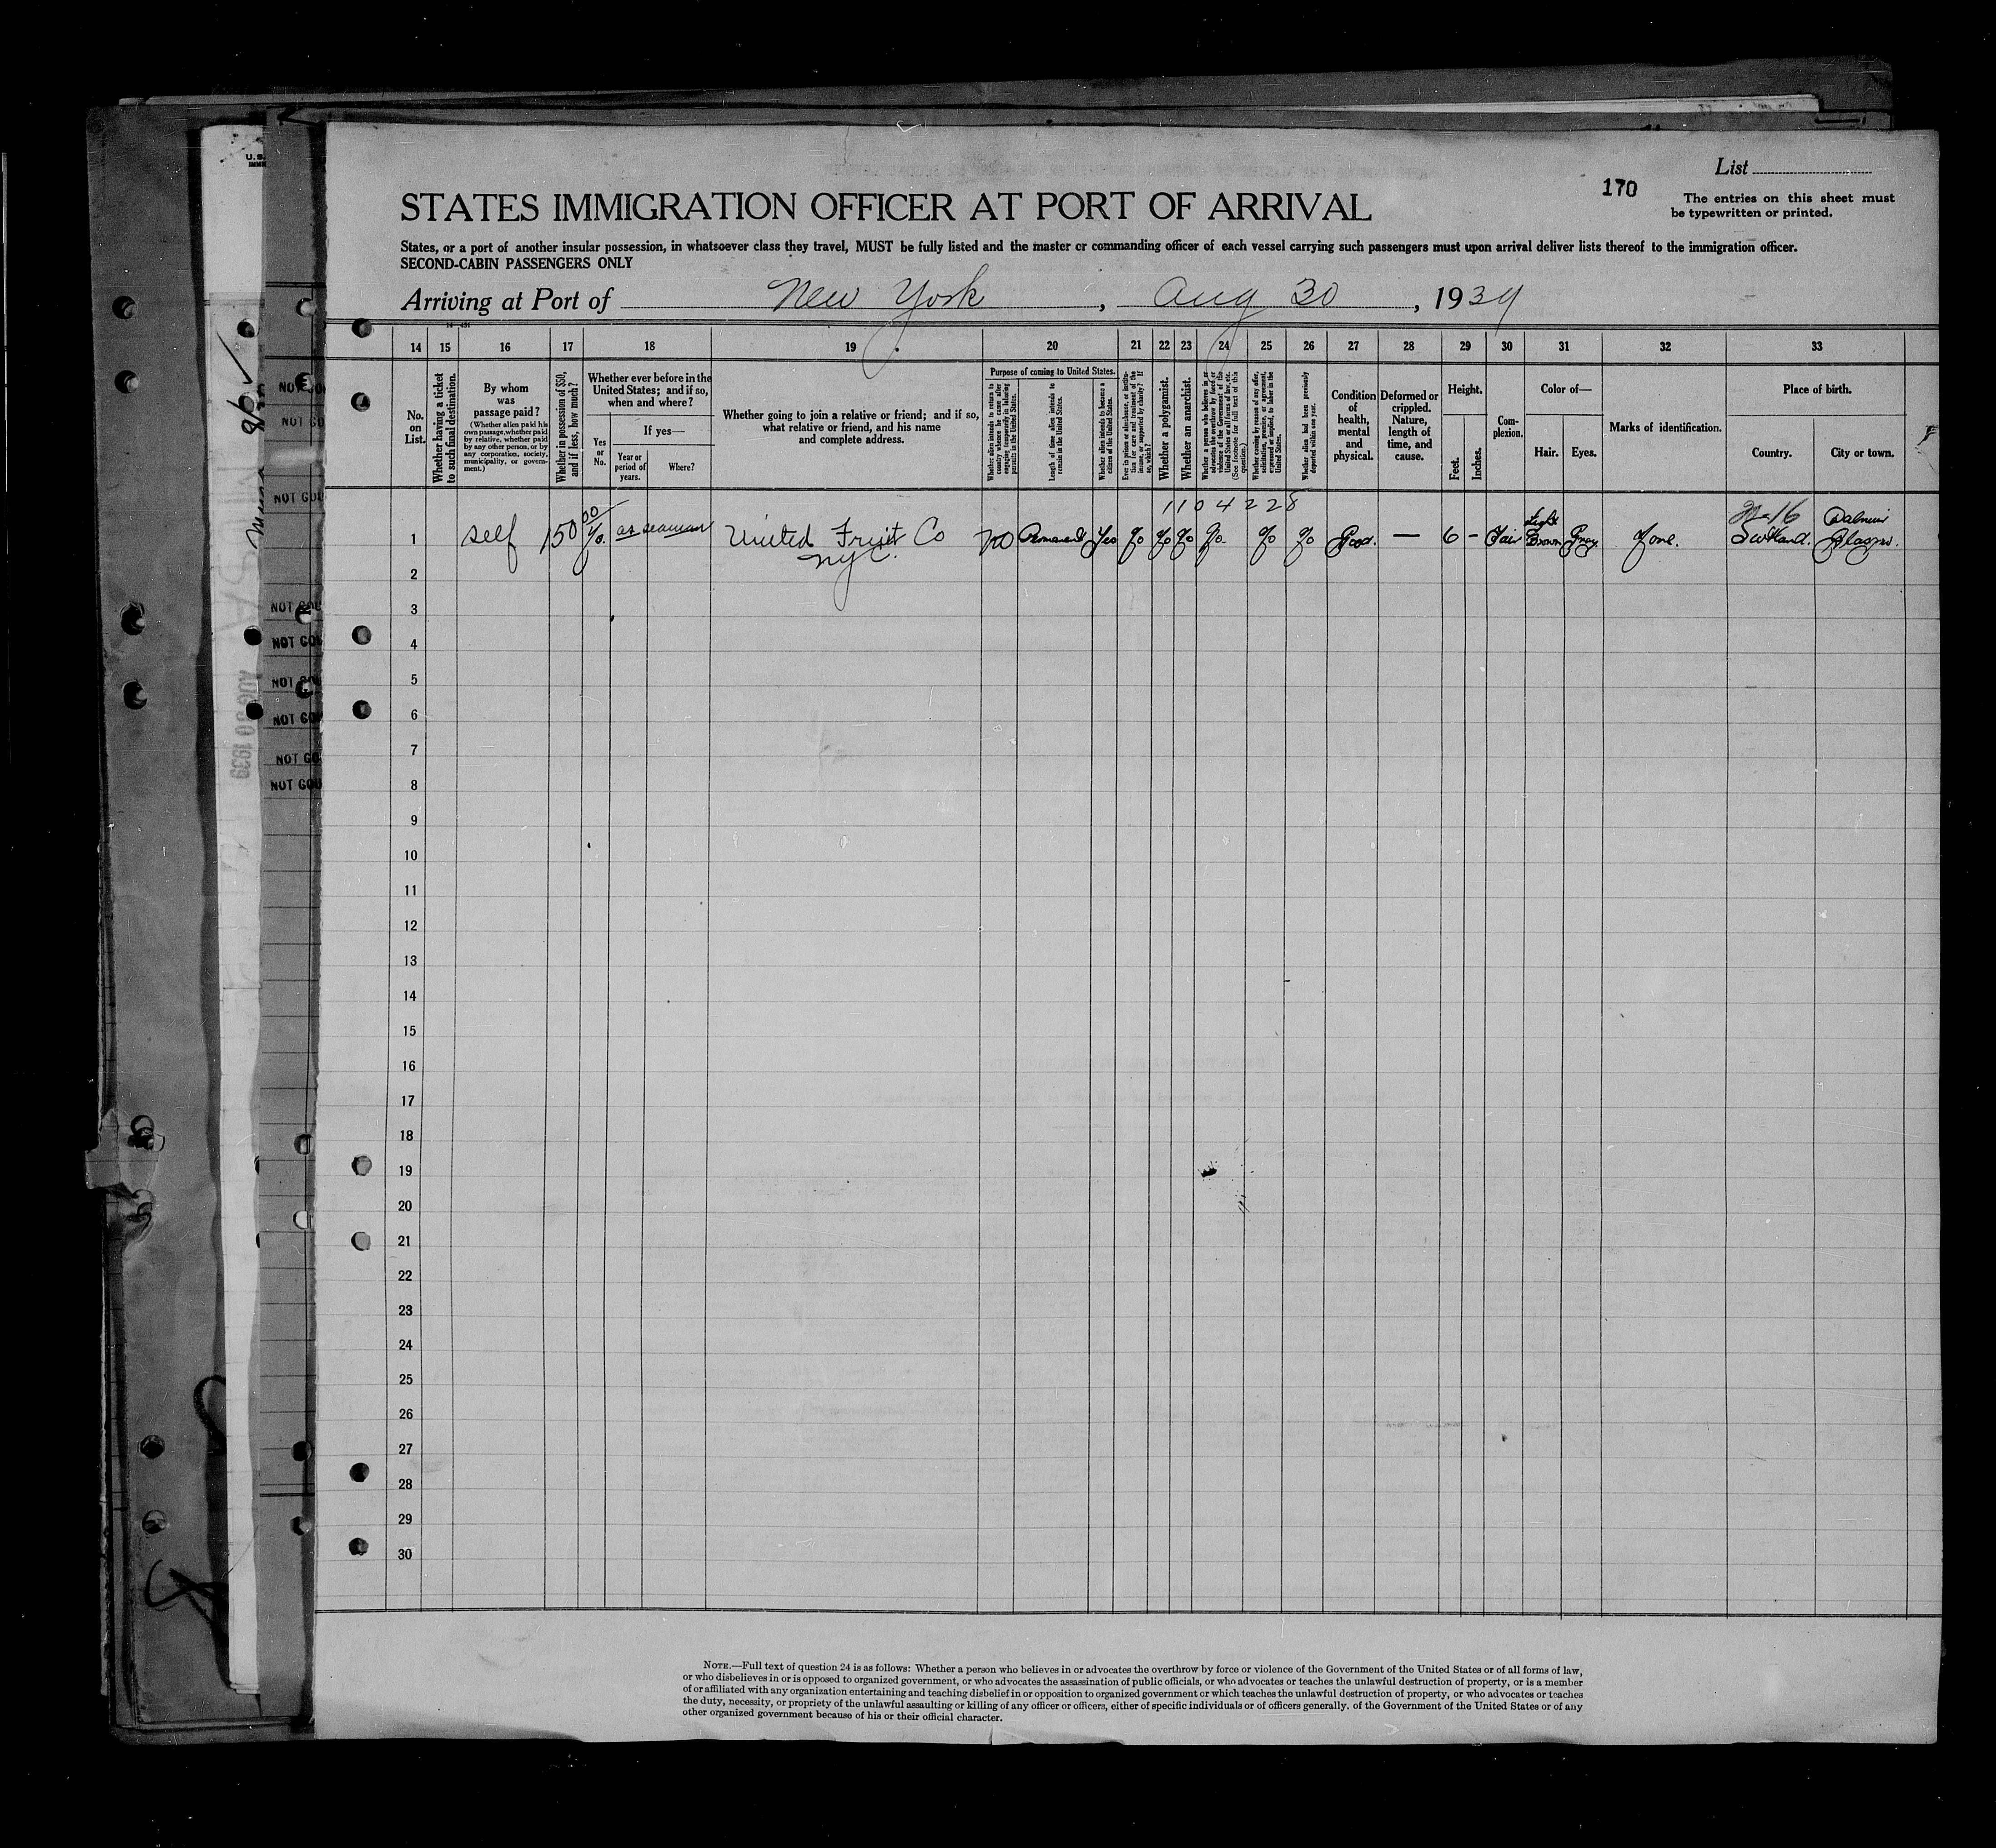 List
170
The entries on this sheet must
be typewritten or printed.
STATES IMMIGRATION OFFICER AT PORT OF ARRIVAL
States, or a port of another insular possession, in whatsoever class they travel, MUST be fully listed and the master or commanding officer of each vessel carrying such passengers must upon arrival deliver lists thereof to the immigration officer.
SECOND-CABIN PASSENGERS ONLY
Arriving at Port of New York, Aug 30, 1939
14 15 16 17 18 19 20 21 22 23 24 25 26 27 28 29 30 31 32 33
No. on List.
Whether having a ticket to such final destination.
By whom was passage paid?
(Whether alien paid his own passage, whether paid by relative, whether paid by any other person, or by any corporation, society, municipality, or government.)
Whether in possession of $50, and if less, how much?
Whether ever before in the United States; and if so, when and where?
If yes—
Yes or No.
Year or period of years.
Where?
Whether going to join a relative or friend; and if so, what relative or friend, and his name and complete address.
Purpose of coming to United States.
Whether alien intends to return to country whence he came after engaging temporarily in laboring pursuits in the United States.
Length of time alien intends to remain in the United States.
Whether alien intends to become a citizen of the United States.
Ever in prison or almshouse, or institution for care and treatment of the insane, or supported by charity? If so, which?
Whether a polygamist.
Whether an anarchist.
Whether a person who believes in or advocates the overthrow by force or violence of the Government of the United States or all forms of law, etc. (See footnote for full text of this question.)
Whether coming by reason of any offer, solicitation, promise, or agreement, expressed or implied, to labor in the United States.
Whether alien had been previously deported within one year.
Condition of health, mental and physical.
Deformed or crippled. Nature, length of time, and cause.
Height.
Feet.
Inches.
Complexion.
Color of—
Hair.
Eyes.
Marks of identification.
Place of birth.
Country.
City or town.
1104228
1 self 150 00 as seaman United Fruit Co no Permanent Yes No No No No No No Good. — 6 - Fair Light Brown Gray None. Scotland. Dalmuir Glasgow.
NYC.
2
3
4
5
6
7
8
9
10
11
12
13
14
15
16
17
18
19
20
21
22
23
24
25
26
27
28
29
30
NOTE.—Full text of question 24 is as follows: Whether a person who believes in or advocates the overthrow by force or violence of the Government of the United States or of all forms of law,
or who disbelieves in or is opposed to organized government, or who advocates the assassination of public officials, or who advocates or teaches the unlawful destruction of property, or is a member
of or affiliated with any organization entertaining and teaching disbelief in or opposition to organized government or which teaches the unlawful destruction of property, or who advocates or teaches
the duty, necessity, or propriety of the unlawful assaulting or killing of any officer or officers, either of specific individuals or of officers generally. of the Government of the United States or of any
other organized government because of his or their official character.